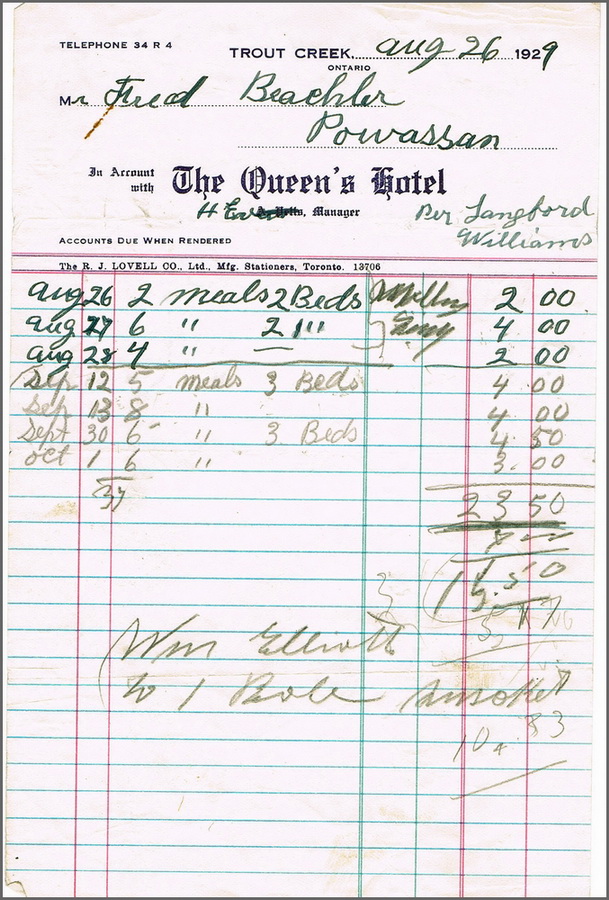 TELEPHONE 34 R 4
TROUT CREEK, Aug 26 1929
ONTARIO
Mr Fred Beachler
Powassan
In Account with The Queen's Hotel
H Evers Manager
Per Langford
Williams
ACCOUNTS DUE WHEN RENDERED
The R. J. LOVELL CO., Ltd., Mfg. Stationers, Toronto. 13706
Aug 26 2 meals 2 Beds 2 00
Aug 27 6 " 2 " 4 00
Aug 28 4 " — 2 00
Sep 12 5 meals 3 Beds 4 00
Sep 13 8 " 4 00
Sept 30 6 " 3 Beds 4 50
Oct 1 6 " 3.00
37
23 50
Wm Elliott
to 1 Bole
10. 83